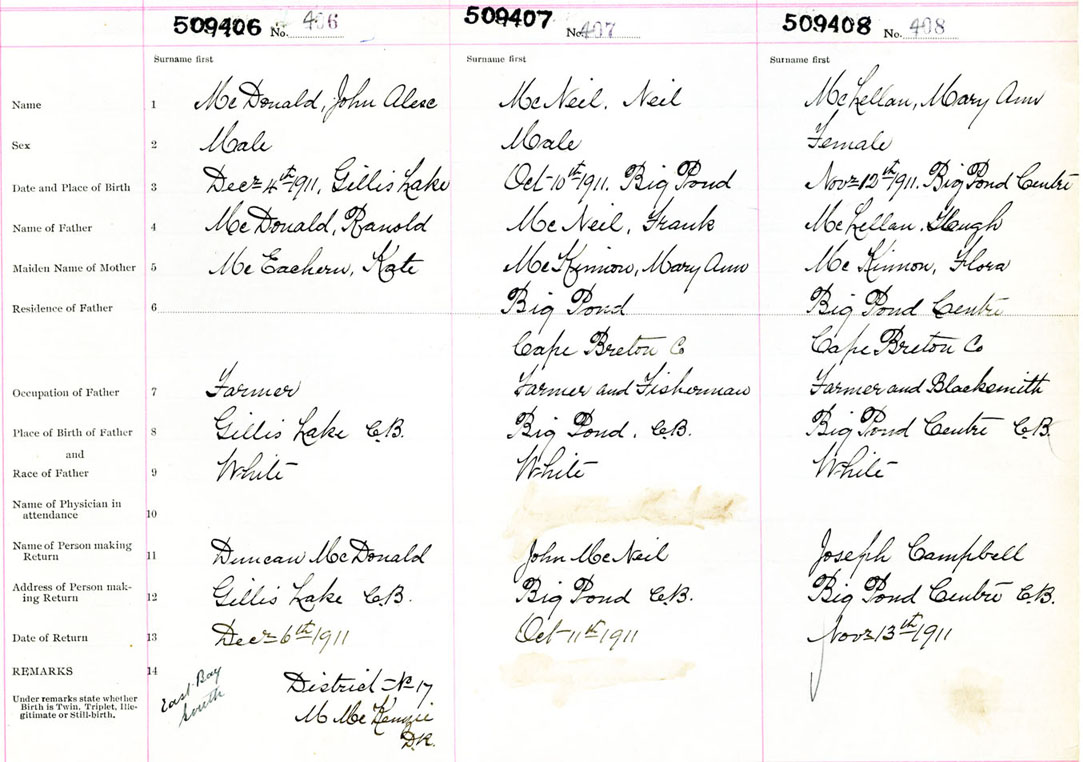 509406 No. 406 509407 No. 407 509408 No. 408
Surname first Surname first Surname first
Name 1 McDonald, John Alexc McNeil, Neil McLellan, Mary Ann
Sex 2 Male Male Female
Date and Place of Birth 3 Decr 4th 1911, Gillis Lake Oct 10th 1911. Big Pond Novr 12th 1911. Big Pond Centre
Name of Father 4 McDonald, Ranold McNeil, Frank McLellan, Hough
Maiden Name of Mother 5 McEachern, Kate McKinnon, Mary Ann McKinnon, Flora
Residence of Father 6 Big Pond Big Pond Centre
Cape Breton Co Cape Breton Co
Occupation of Father 7 Farmer Farmer and Fisherman Farmer and Blacksmith
Place of Birth of Father 8 Gillis Lake C.B. Big Pond, C.B. Big Pond Centre C.B.
and
Race of Father 9 White White White
Name of Physician in
attendance 10
Name of Person making
Return 11 Duncan McDonald John McNeil Joseph Campbell
Address of Person mak-
ing Return 12 Gillis Lake C.B. Big Pond C.B. Big Pond Centre C.B.
Date of Return 13 Decr 6th 1911 Oct 11th 1911 Novr 13th 1911
REMARKS 14 East Bay District No 17
Under remarks state whether
Birth is Twin, Triplet, Ille-
gitimate or Still-birth. South M McKenzie
D.R.